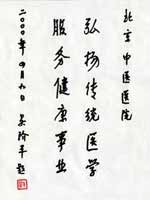 北京中医医院
弘扬传统医学
服务健康事业
二〇〇〇年四月九日 吴阶平题